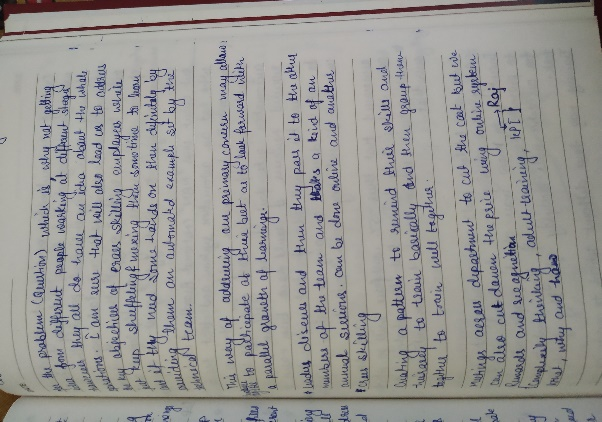 the problem (Question) which is why not getting
from different people working at different stage
they all do have an idea about the whole
I am sure that will also lead us to address
key objectives of cross skilling employees while
keep shuffling & making them sometime to learn
if they need some hands on then definitely by
providing them an automated example set by the
technical team.
This way of addressing our primary concern may allow
to participate at their best as to look forward with
a parallel growth of learnings.
Leaders discuss and then they pass it to the other
members of the team and a kind of an
annual sessions. Can be done online and another
Cross skilling
Creating a pattern to remind their skills and
to train basically and then group them
together to train well together.
Meetings across department to cut the cost but we
can also cut down the price using online system
Rewards and recognition KPI Raj
thinking, adult training,
that, why and how